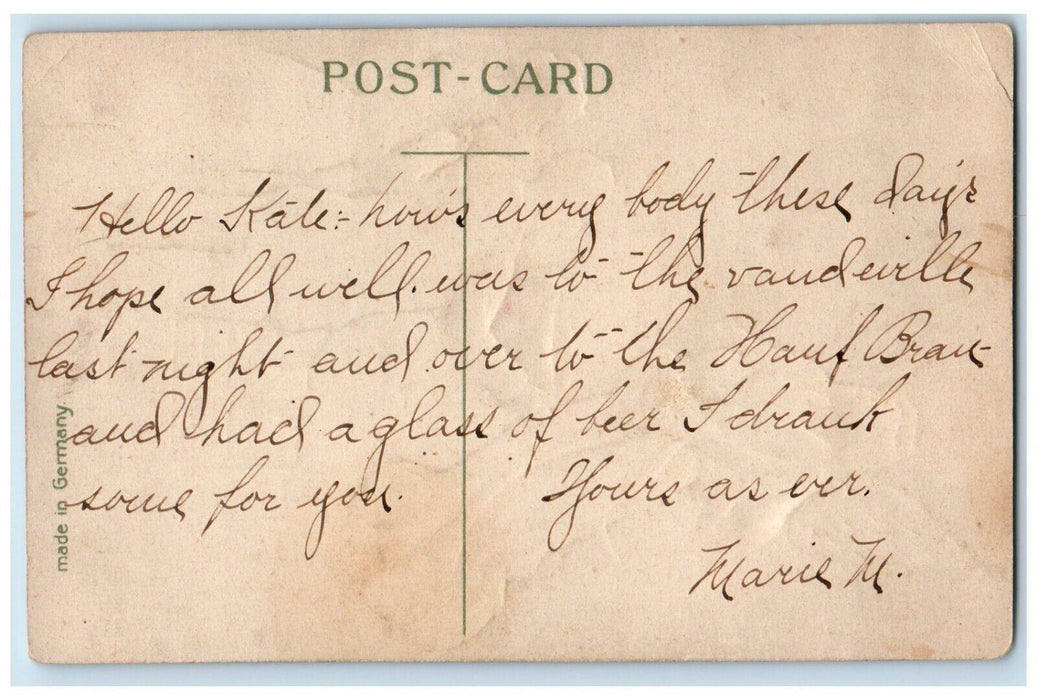 POST-CARD
Hello Kate:- how's every body these day's
I hope all well. was to the vaudeville
last night and over to the Hauf Brau
and had a glass of beer I drank
some for you.
Yours as ever.
Marie M.
made in Germany